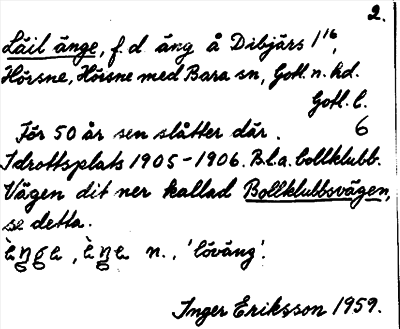 2.
Läil änge, f.d. äng å Dibjärs 1¹⁶,
Hörsne, Hörsne med Bara sn, Gotl. n. hd.
Gotl. l.
För 50 år sen slåtter där. 6
Idrottsplats 1905-1906. Bl.a. bollklubb.
Vägen dit ner kallad Bollklubbsvägen,
se detta.
n., 'löväng'.
Inger Eriksson 1959.